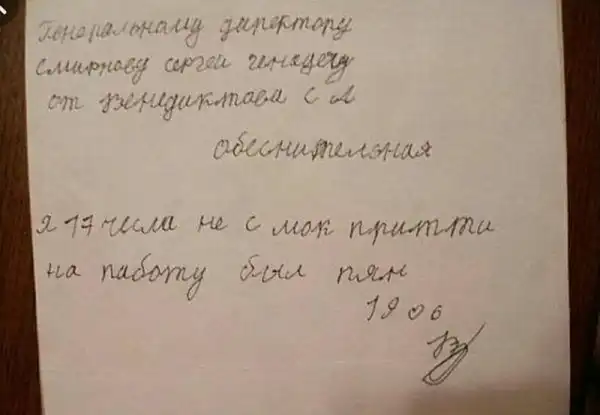 Генеральному директору
смирнову сергеи генадечу
от Венедиктова С А
обеснителэная
я 17 числа не с мок притти
на паботу был пян
19 06